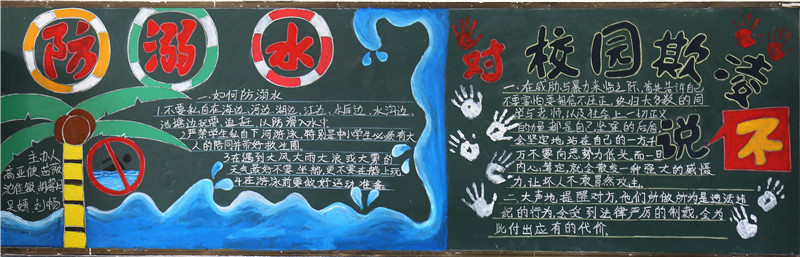 防溺水
一.如何防溺水
1.不要私自在海边、河边、湖边、江边、水库边、水沟边、
池塘边玩耍、追赶,以防滑入水中。
2.严禁学生私自下河游泳,特别是中小学生必须有大
人的陪同并带好救生圈。
3.在遇到大风、大雨、大浪或大雾的
天气最好不要坐船,更不要在船上玩
4.在游泳前要做好适动准备
主办人
高亚俊
吴婧、刘畅
对校园欺凌
说不
一.在威胁与暴力来临之际,首先告诉自己
不要害怕要相信邪不压正,终归大多数的同
学与老师,以及社会上一切正义
的
都是自己坚强的后盾
会坚定地站在自己的一方千
万不要向恶势力低头。而一旦
内心笃定,就会散发一种强大的威慑
力,让坏人不敢贸然攻击。
二.大声地提醒对方,他们所做所为是违法违
纪的行为,会受到法律严厉的制裁,会为
此付出应有的代价。